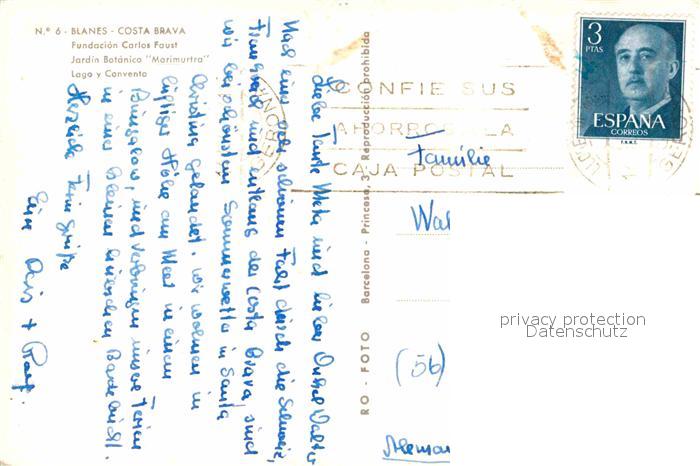 N.º 6 - BLANES - COSTA BRAVA
Fundación Carlos Faust
Jardín Botánico "Marimurtra"
Lago y Convento
Liebe Tante Meta und lieber Onkel Walter
Nach einer sehr schönen Fahrt durch die Schweiz,
Frankreich und entlang der Costa Brava, sind
wir bei schönstem Sommerwetter in Santa
Christina gelandet. Wir wohnen in
luftiger Höhe am Meer in einem
Bungalow, und verbringen unsere Ferien
in einer kleinen Badebucht.
Herzliche Feriengrüße
Eure Doris +
RO - FOTO Barcelona - Princesa, 3 - Reproducción prohibida
CONFIE SUS
AHORROS A LA
CAJA POSTAL
3
PTAS
ESPAÑA
CORREOS
F.N.M.T.
Familie
Wal
(56)
Aleman
privacy protection
Datenschutz